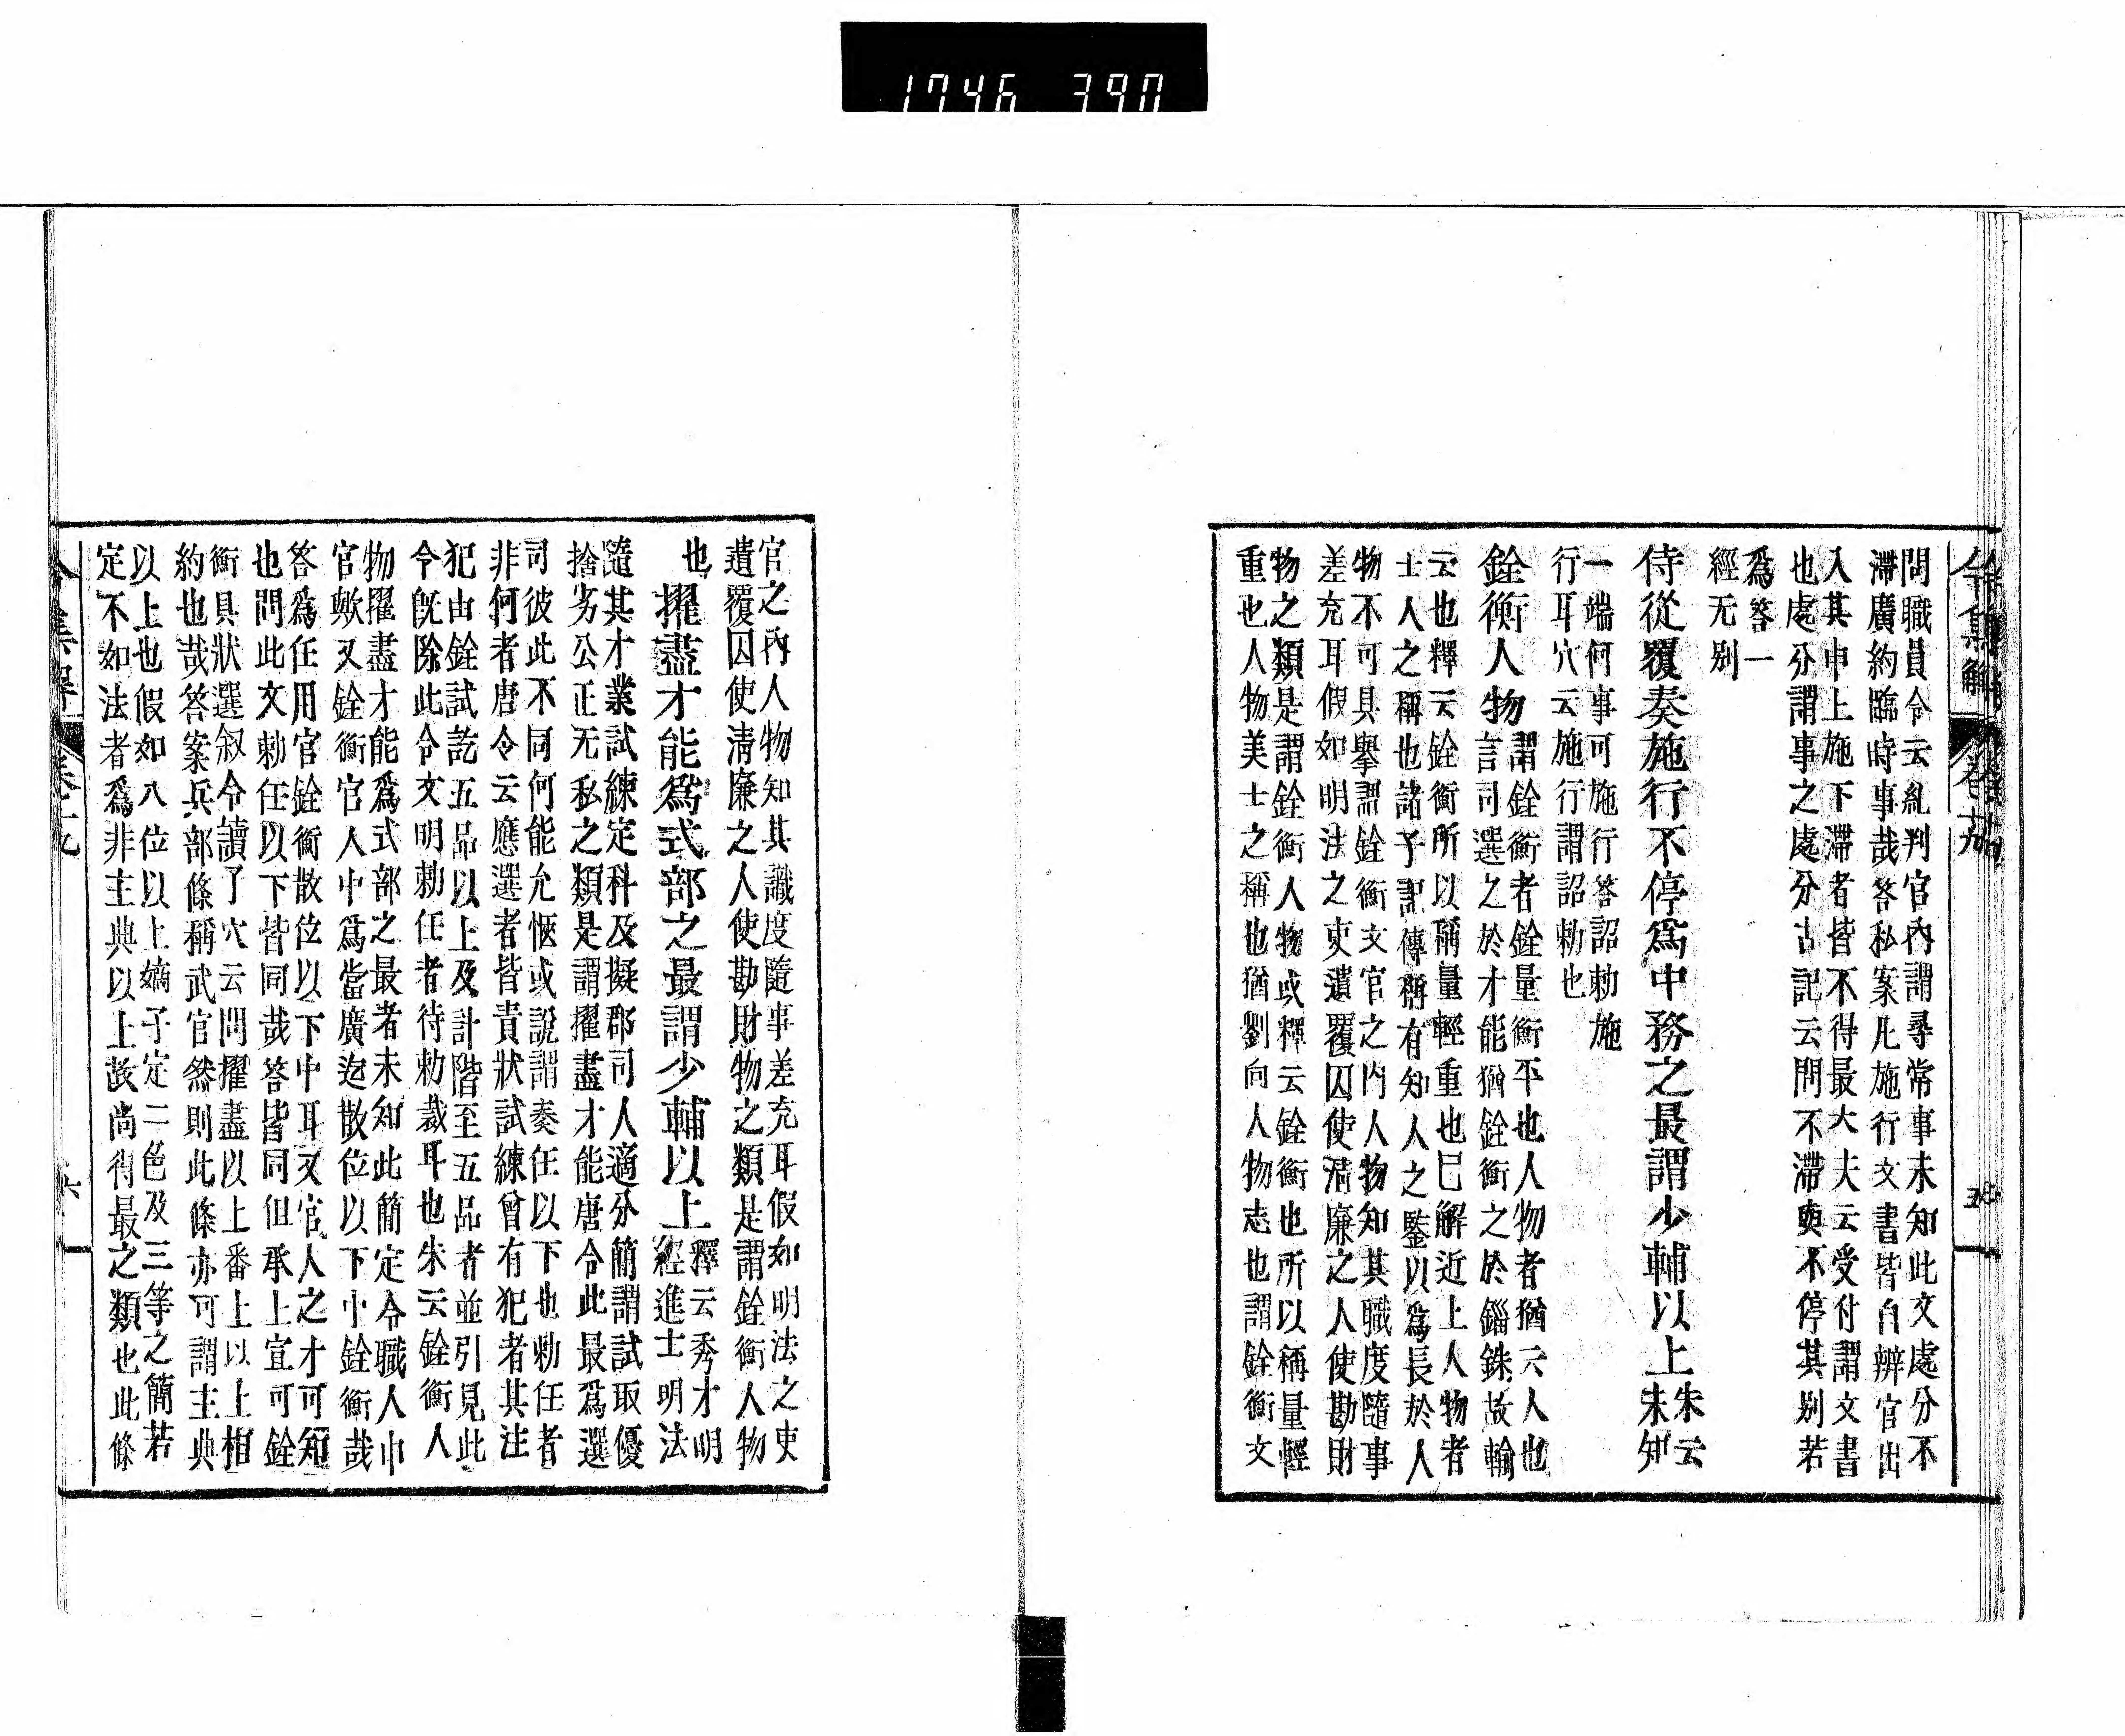 1746 390
令集解 卷十九
問職員令云糺判官內謂尋常事未知此文處分不
滯廣約臨時事哉答私案凡施行文書皆自辨官出
入其申上施下滯者皆不得最大夫云受付謂文書
也處分謂事之處分古記云問不滯與不停其別若
爲答一
經无別
侍從覆奏施行不停爲中務之最謂少輔以上
朱云
未知
一端何事可施行答詔勅施
行耳穴云施行謂詔勅也
銓衡人物
謂銓衡者銓量衡平也人物者猶云人也
言司選之於才能猶銓衡之於錙銖故輸
云也釋云銓衡所以稱量輕重也已解近上人物者
士人之稱也諸子記傳稱有知人之鑒以爲長於人
物不可具擧謂銓衡文官之內人物知其職度隨事
差充耳假如明法之吏遣覆囚使淸廉之人使勘財
物之類是謂銓衡人物或釋云銓衡也所以稱量輕
重也人物美士之稱也猶劉向人物志也謂銓衡文
官之內人物知其識度隨事差充耳假如明法之吏
遣覆囚使淸廉之人使勘財物之類是謂銓衡人物
也
擢盡才能爲式部之最謂少輔以上
釋云秀才明
經進士明法
隨其才業試練定科及擬郡司人適分簡謂試取優
捨劣公正无私之類是謂擢盡才能唐令此最爲選
司彼此不同何能允愜或說謂奏任以下也勅任者
非何者唐令云應選者皆責狀試練曾有犯者其注
犯由銓試訖五品以上及計階至五品者並引見此
令旣除此令文明勅任者待勅裁耳也朱云銓衡人
物擢盡才能爲式部之最者未知此簡定令職人中
官歟又銓衡官人中爲當廣迄散位以下中銓衡哉
答爲任用官銓衡散位以下中耳又官人之才可知
也問此文勅任以下皆同哉答皆同但承上宜可銓
衡具狀選叙令讀了穴云問擢盡以上番上以上相
約也哉答案兵部條稱武官然則此條亦可謂主典
以上也假如八位以上嫡子定二色及三等之簡若
定不如法者爲非主典以上故尚得最之類也此條
令集解 卷十九 六